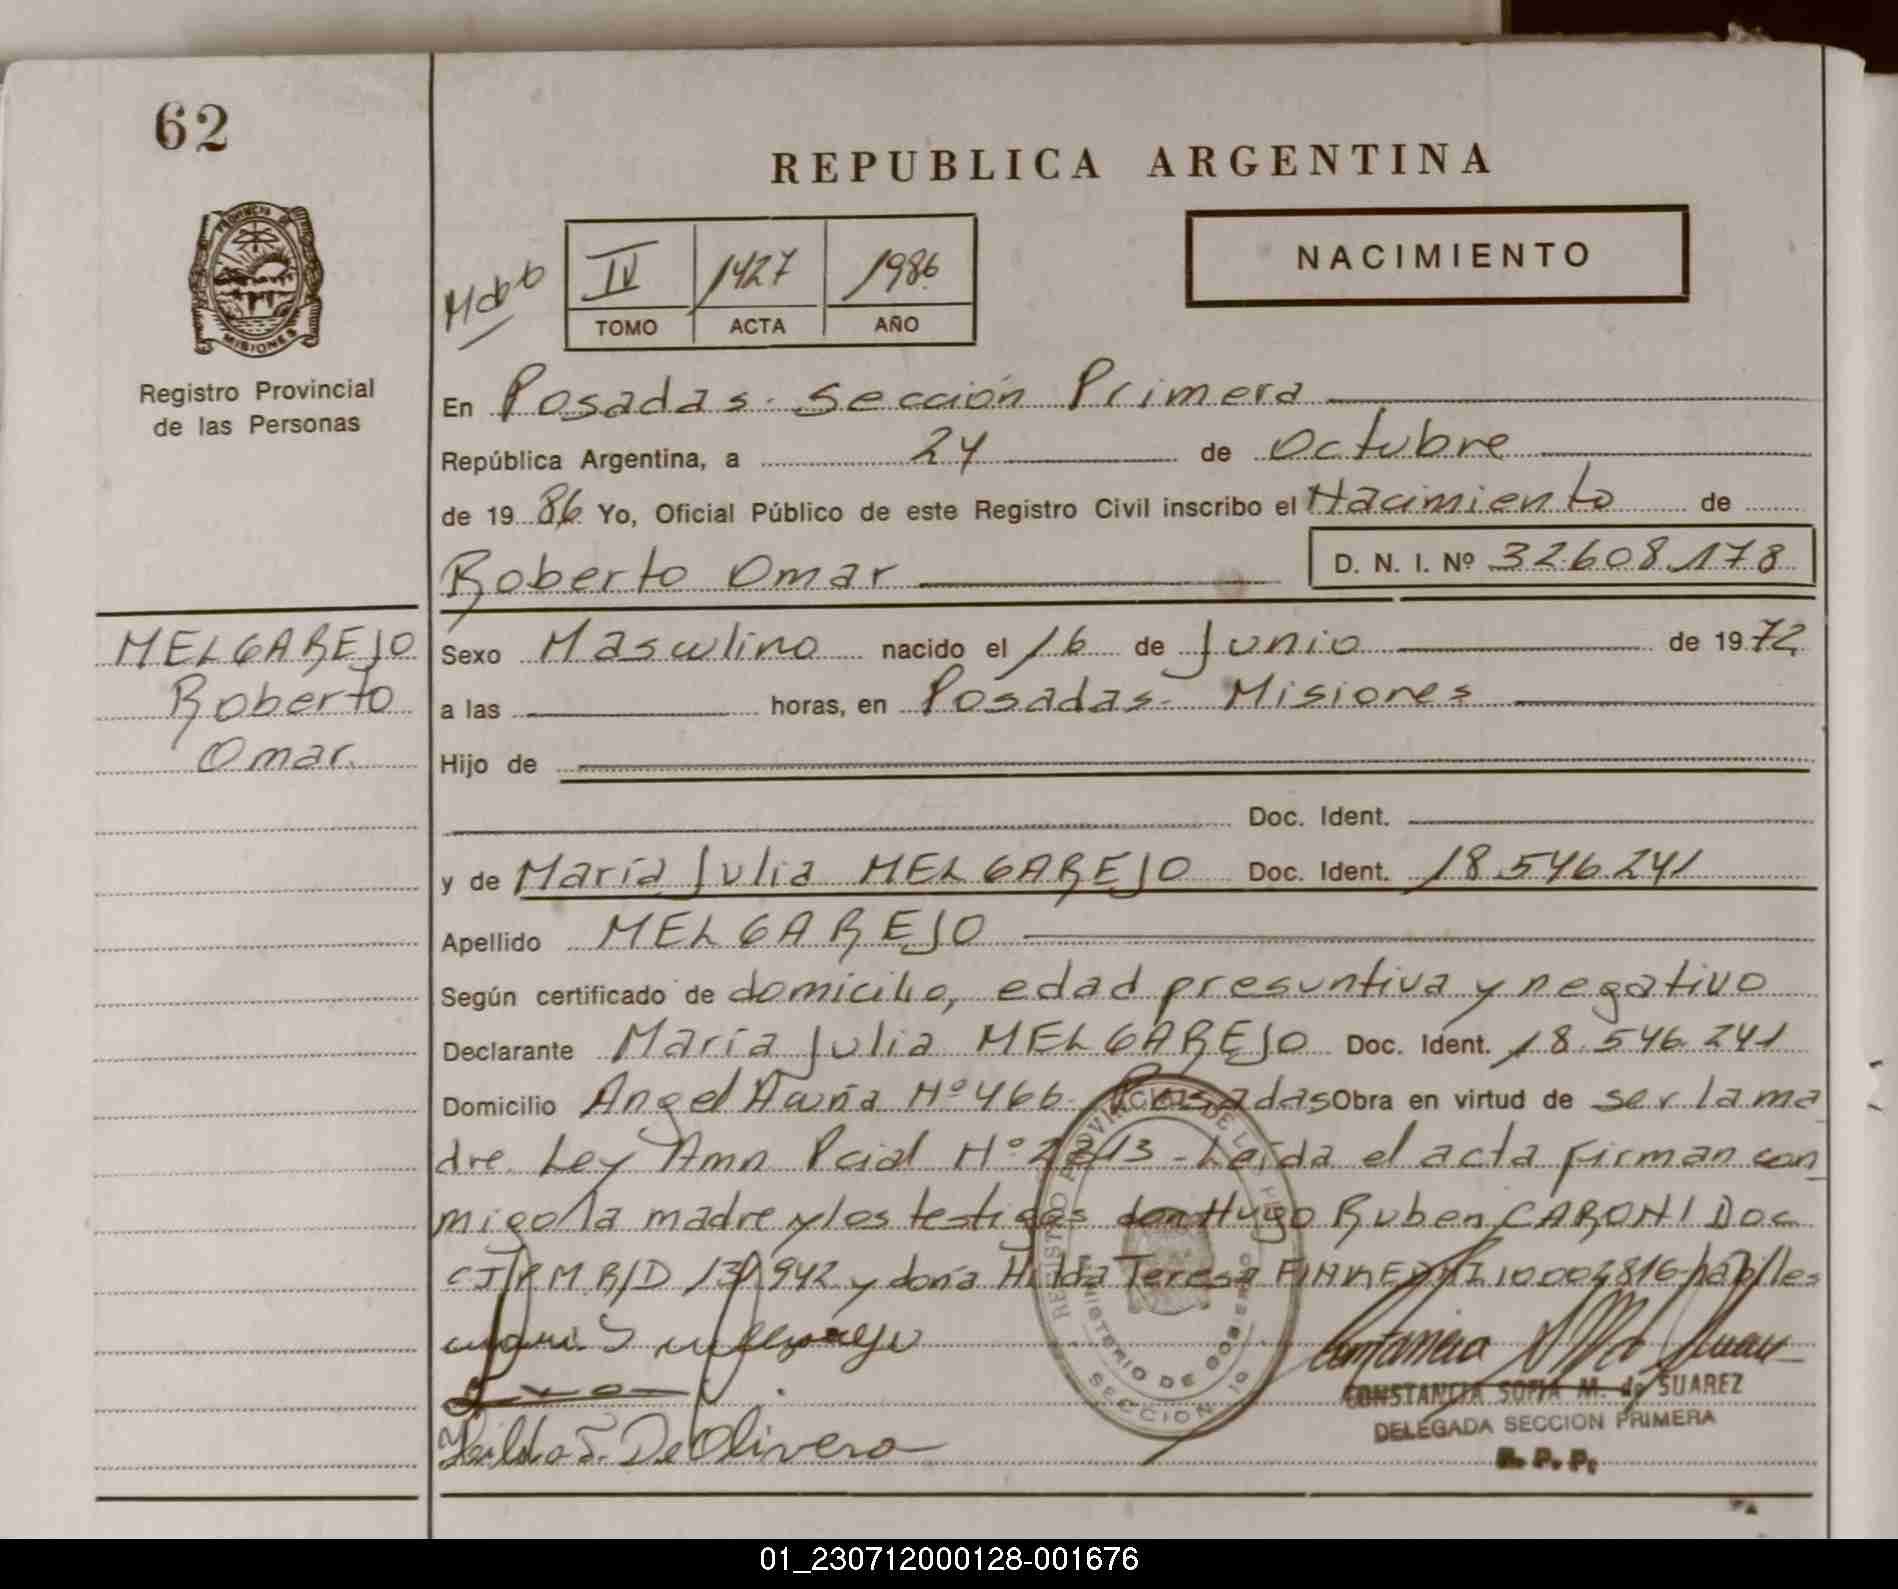 62
REPUBLICA ARGENTINA
PROVINCIA DE MISIONES
Registro Provincial
de las Personas
IV 1427 1986
TOMO ACTA AÑO
NACIMIENTO
En Posadas - Sección Primera
República Argentina, a 24 de Octubre
de 1986 Yo, Oficial Público de este Registro Civil inscribo el Nacimiento de
Roberto Omar D. N. I. Nº 32.608.178
MELGAREJO
Roberto
Omar.
Sexo Masculino nacido el 16 de Junio de 1972
a las horas, en Posadas - Misiones
Hijo de
Doc. Ident.
y de María Julia MELGAREJO Doc. Ident. 18.546.241
Apellido MELGAREJO
Según certificado de domicilio, edad presuntiva y negativo
Declarante María Julia MELGAREJO Doc. Ident. 18.546.241
Domicilio Angel Acuña Nº 466 - Posadas Obra en virtud de ser la ma
dre. Ley Amn Pcial Nº - Leída el acta firman con
migo la madre y los testigos don Hugo Ruben CARONI Doc
942 y doña Hilda Teresa habiles
Hilda T. De Olivera
CONSTANCIA SOFIA M. de SUAREZ
DELEGADA SECCION PRIMERA
R. P. P.
REGISTRO PROVINCIAL DE LAS PERSONAS
MINISTERIO DE GOBIERNO
SECCION 1º
01_230712000128-001676